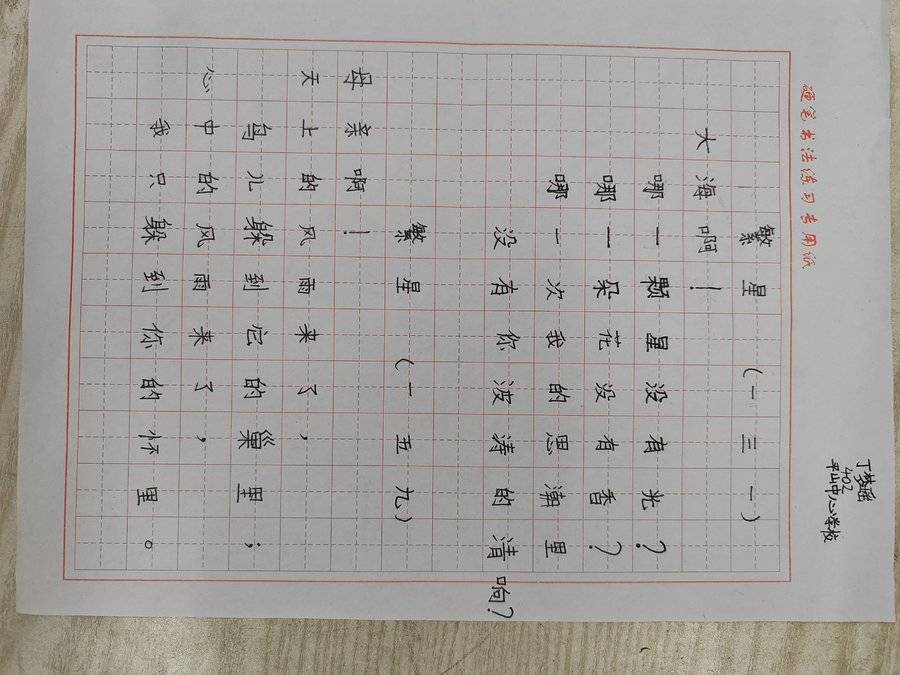 丁梦瑶
402
平山中心学校
硬笔书法练习专用纸
繁星（一三一）
大海啊！
哪一颗星没有光？
哪一朵花没有香？
哪一次我的思潮里
没有你波涛的清响？
繁星（一五九）
母亲啊！
天上的风雨来了，
鸟儿躲到它的巢里；
心中的风雨来了，
我只躲到你的怀里。